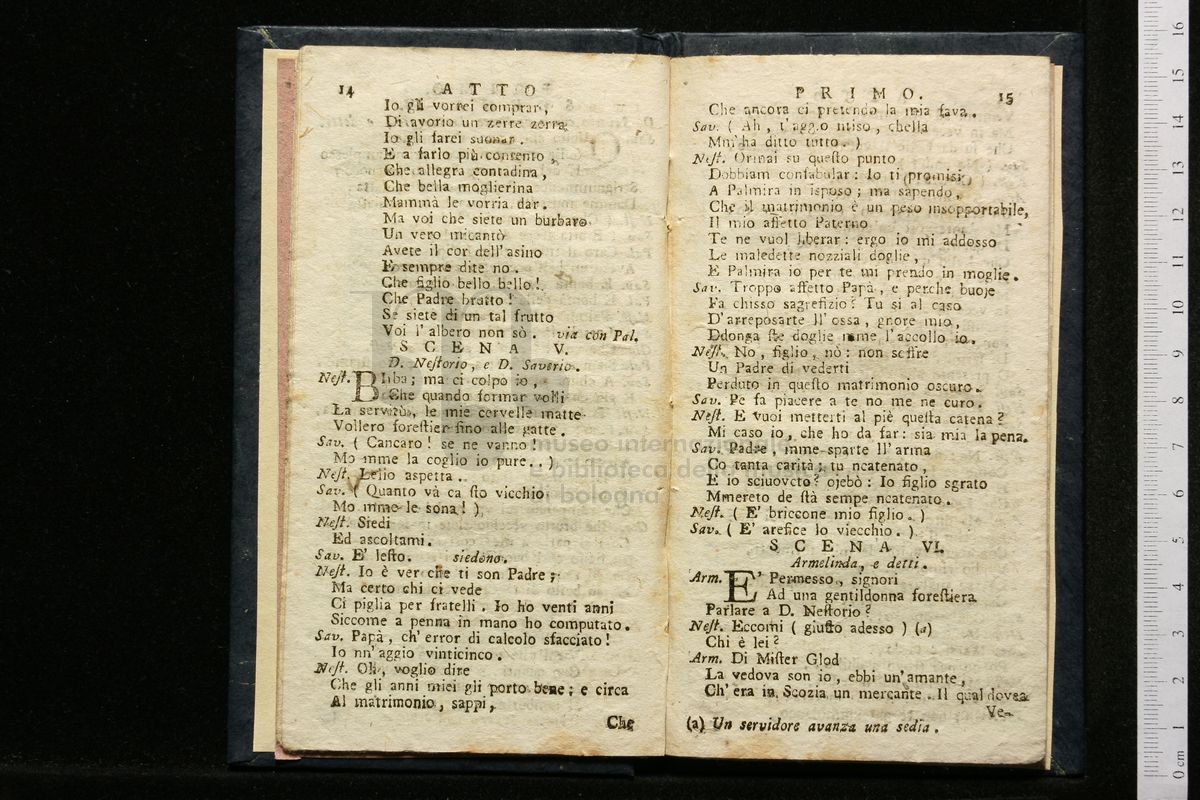 14 ATTO
Io gli vorrei comprar,
Di avorio un zerre zerra,
Io gli farei suonar.
E a farlo più contento,
Che allegra contadina,
Che bella moglierina
Mammà le vorria dar.
Ma voi che siete un burbaro
Un vero micantò
Avete il cor dell'asino
E sempre dite no.
Che figlio bello bello!
Che Padre bratto!
Se siete di un tal frutto
Voi l'albero non sò. via con Pal.
SCENA V.
D. Nestorio, e D. Saverio.
Nest. Bliba; ma ci colpo io,
Che quando formar volli
La servitù, le mie cervelle matte
Vollero forestier fino alle gatte.
Sav. ( Cancaro! se ne vanno!
Mo mme la coglio io pure. )
Nest. Lelio aspetta.
Sav. ( Quanto và ca sto vicchio
Mo mme le sona! )
Nest. Siedi
Ed ascoltami.
Sav. E' lesto. siedono.
Nest. Io è ver che ti son Padre;
Ma certo chi ci vede
Ci piglia per fratelli. Io ho venti anni
Siccome a penna in mano ho computato.
Sav. Papà, ch'error di calcolo sfacciato!
Io nn'aggio vinticinco.
Nest. Oh, voglio dire
Che gli anni miei gli porto bene; e circa
Al matrimonio, sappi,
Che
PRIMO. 15
Che ancora ci pretendo la mia fava.
Sav. ( Ah, t'aggio ntiso, chella
Mm'ha ditto tutto. )
Nest. Ormai su questo punto
Dobbiam confabular: Io ti promisi
A Palmira in isposo; ma sapendo,
Che il matrimonio è un peso insopportabile,
Il mio affetto Paterno
Te ne vuol liberar: ergo io mi addosso
Le maledette nozziali doglie,
E Palmira io per te mi prendo in moglie.
Sav. Troppo affetto Papà, e perche buoje
Fa chisso sagrefizio? Tu si al caso
D'arreposarte ll'ossa, gnore mio,
Ddonga ste doglie mme l'accollo io.
Nest. No, figlio, nò: non soffre
Un Padre di vederti
Perduto in questo matrimonio oscuro.
Sav. Pe fa piacere a te no me ne curo.
Nest. E vuoi metterti al piè questa catena?
Mi caso io, che ho da far: sia mia la pena.
Sav. Padre, mme sparte ll'arma
Co tanta carità; tu ncatenato,
E io sciuovcto? ojebò: Io figlio sgrato
Mmereto de stà sempe ncatenato.
Nest. ( E' briccone mio figlio. )
Sav. ( E' arefice lo viecchio. )
SCENA VI.
Armelinda, e detti.
Arm. E' Permesso, signori
Ad una gentildonna forestiera
Parlare a D. Nestorio?
Nest. Eccomi ( giusto adesso ) (a)
Chi è lei?
Arm. Di Mister Glod
La vedova son io, ebbi un'amante,
Ch'era in Scozia un mercante. Il qual dovea
Ve-
(a) Un servidore avanza una sedia.
museo internazionale
e biblioteca della musica
di bologna
0 cm 1 2 3 4 5 6 7 8 9 10 11 12 13 14 15 16